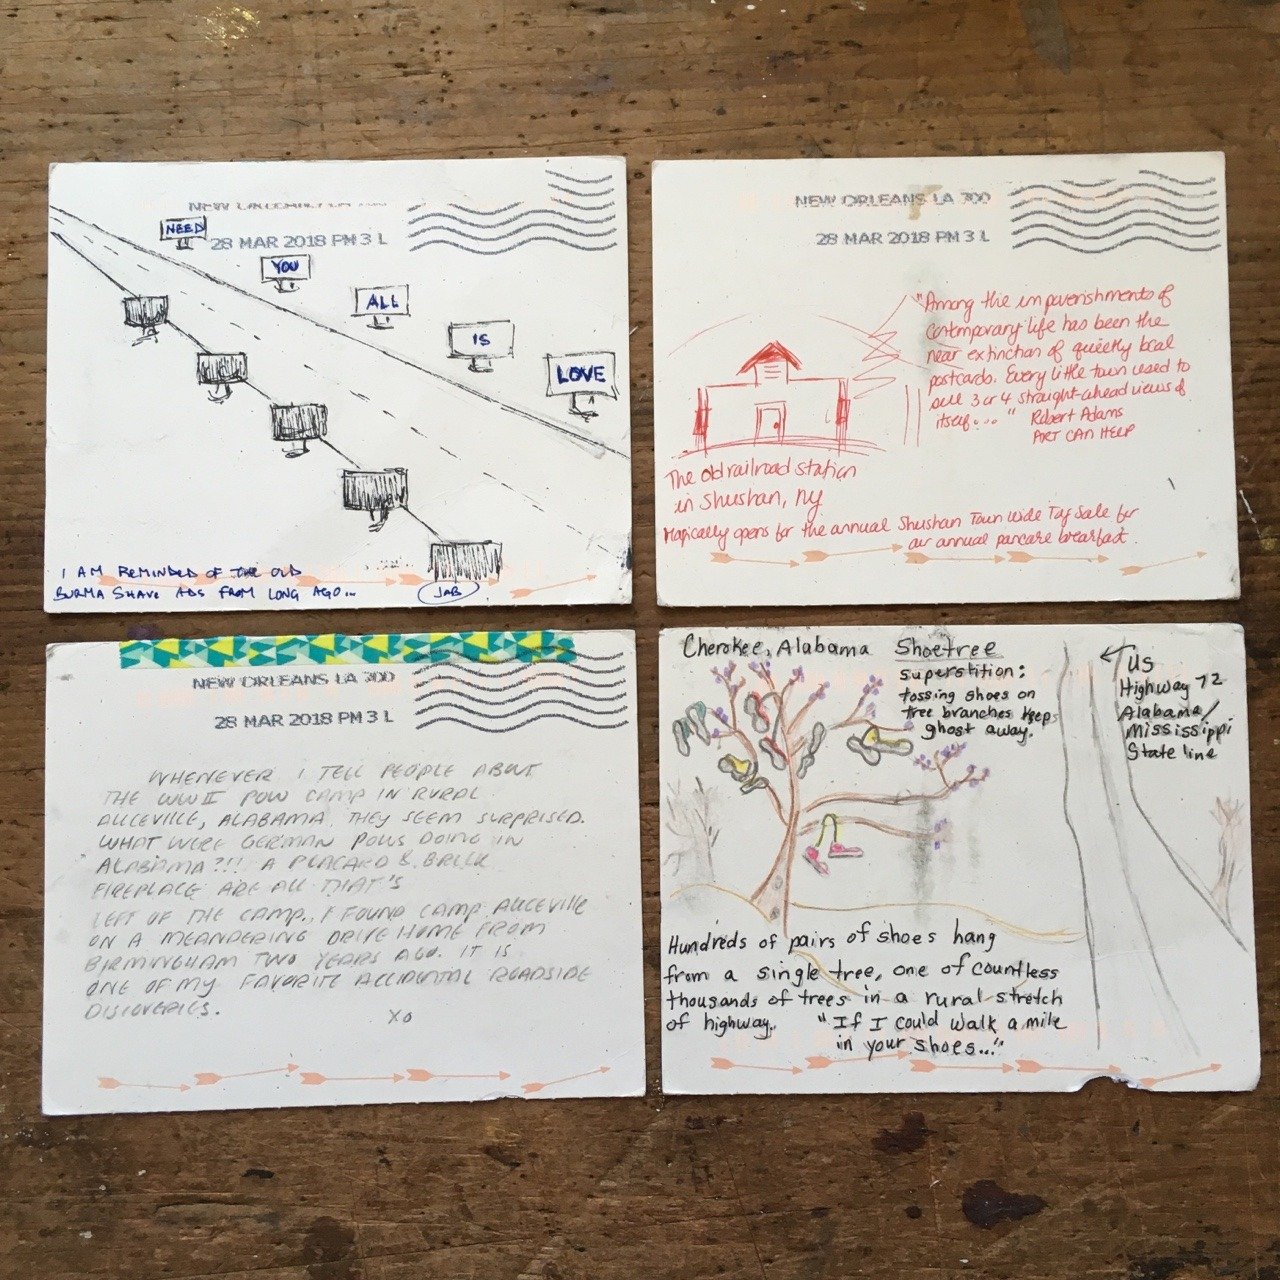 NEW ORLEANS LA 700
28 MAR 2018 PM 3 L
NEED
YOU
ALL
IS
LOVE
I AM REMINDED OF THE OLD
BURMA SHAVE ADS FROM LONG AGO...
JAB
NEW ORLEANS LA 700
28 MAR 2018 PM 3 L
"Among the impoverishments of
contemporary life has been the
near extinction of quietly local
postcards. Every little town used to
sell 3 or 4 straight-ahead views of
itself...."
Robert Adams
ART CAN HELP
The old railroad station
in Shushan, NY
Magically opens for the annual Shushan Town Wide Tag Sale for
our annual pancake breakfast.
NEW ORLEANS LA 700
28 MAR 2018 PM 3 L
WHENEVER I TELL PEOPLE ABOUT
THE WWII POW CAMP IN RURAL
ALICEVILLE, ALABAMA, THEY SEEM SURPRISED.
WHAT WERE GERMAN POWS DOING IN
ALABAMA?!!! A PLACARD & BRICK
FIREPLACE ARE ALL THAT'S
LEFT OF THE CAMP. I FOUND CAMP ALICEVILLE
ON A MEANDERING DRIVE HOME FROM
BIRMINGHAM TWO YEARS AGO. IT IS
ONE OF MY FAVORITE ACCIDENTAL ROADSIDE
DISCOVERIES.
XO
Cherokee, Alabama Shoetree
superstition:
tossing shoes on
tree branches keeps
ghost away.
US
Highway 72
Alabama/
Mississippi
State line
Hundreds of pairs of shoes hang
from a single tree, one of countless
thousands of trees in a rural stretch
of highway.. "If I could walk a mile
in your shoes..."